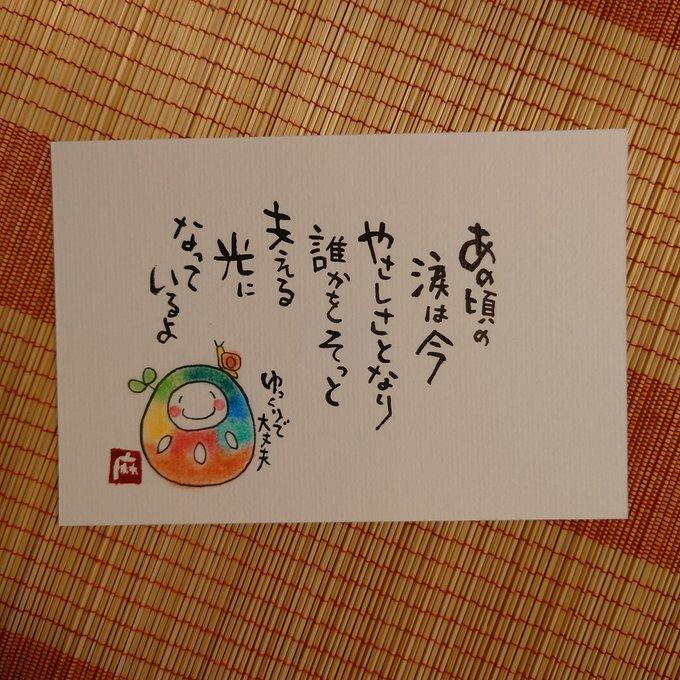 あの頃の
涙は今
やさしさとなり
誰かをそっと
支える
光に
なって
いるよ
ゆっくりで
大丈夫
麻